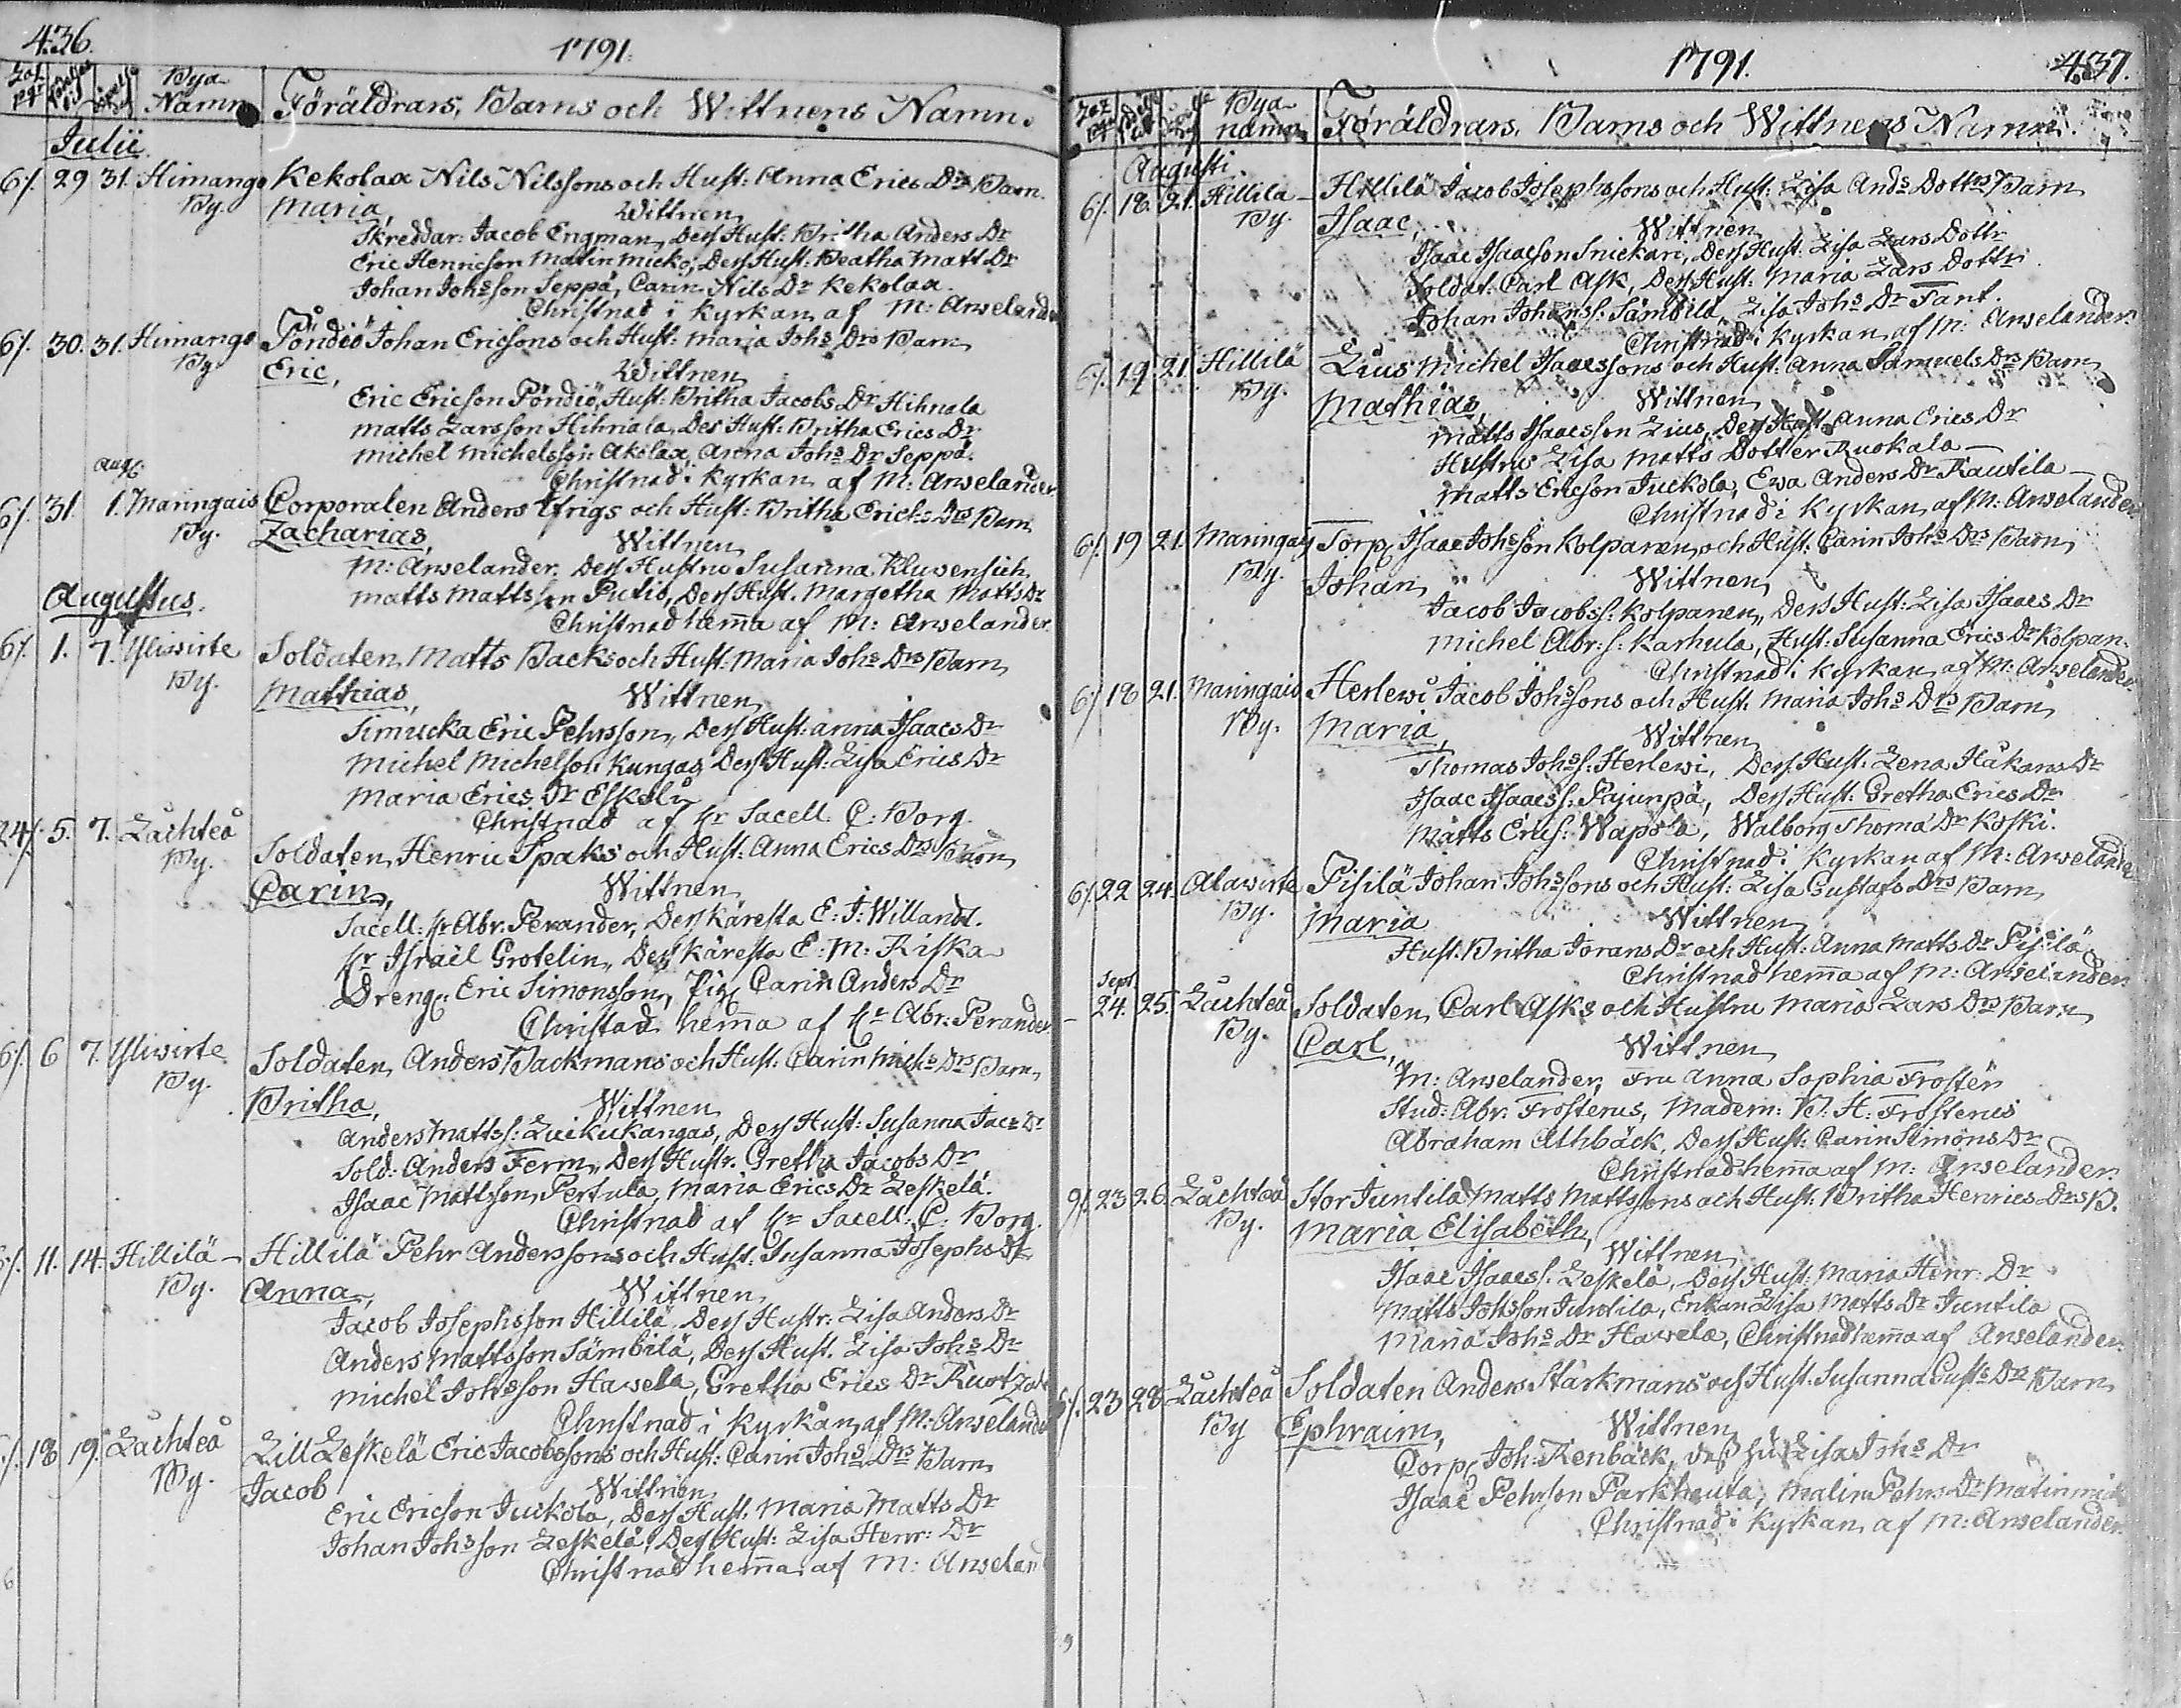 436.
1791.
Bya Namn
Föräldrars, Barns och Wittnens Namn.
Julii
6/. 29 31. Himango By. Kekolax Nils Nilssons och Hust: Anna Erics Drs Barn
Maria, Wittnen
Skreddar: Jacob Engman, Dess Hust: Britha Anders Dr
Eric Henricson Matinmicko, Dess Hust: Beatha Matt Dr
Johan Johsson Seppä, Carin Nils Dr Kekolax.
Christnad i Kyrkan af M: Anselander
6/. 30. 31. Himango By. Pöndiö Johan Ericsons och Hust: Maria Johs Drs Barn
Eric, Wittnen
Eric Ericson Pöndiö, Hust: Britha Jacobs Dr Hihnala
Matts Larsson Hihnala, Des Hust: Britha Erics Dr
Michel Michelsson Akolax, Anna Johs Dr Seppä.
Christnad i Kyrkan af M: Anselander
Aug:
6/. 31. 1. Maringais By. Corporalen Anders Ifrigs och Hust: Britha Erichs Drs Barn
Zacharias, Wittnen
M: Anselander, Dess Hustru Susanna Kluvensich
Matts Mattsson Putis, Dess Hust. Margetha Matts Dr
Christnad hemma af M: Anselander.
Augustus.
6/. 1. 7. Yliwirte By. Soldaten Matts Backs och Hust: Maria Johs Drs Barn
Mathias, Wittnen
Simucka Eric Pehrsson, Dess Hust: Anna Isaacs Dr
Michel Michelson Kungas Dess Hust: Lisa Erics Dr
Maria Erics Dr Eskola
Christnad af Hr Sacell. C: Borg.
24/. 5. 7. Lachteå By. Soldaten Henric Spaks och Hust: Anna Erics Drs Barn
Carin, Wittnen
Sacell: Hr Abr. Perander, Dess Käresta E: J: Willandt.
Hr Israël Grotelin, Dess Käresta E: M: Riska
Dreng: Eric Simonsson, Pig: Carin Anders Dr
Christad hemma af Hr Abr: Perander.
6/. 6 7. Yliwirte By. Soldaten Anders Backmans och Hust: Carin Michs Drs Barn,
Britha, Wittnen
Anders Mattss: Luikukangas, Dess Hust: Susanna Jacs Dr
Sold: Anders Ferm, Dess Hustr. Gretha Jacobs Dr
Isaac Mattsson Pertula, Maria Erics Dr Leskelä.
Christnad af Hr Sacell: C: Borg.
6/. 11. 14. Hillilä By. Hillilä Pehr Anderssons och Hust: Susanna Josephs Dr
Anna, Wittnen
Jacob Josephsson Hillilä Dess Hustr: Lisa Anders Dr
Anders Mattsson Sämbilä, Dess Hust. Lisa Johs Dr
Michel Johsson Havela, Gretha Erics Dr
Christnad i Kyrkan af M: Anselander
6/. 18 19. Lachteå By. Lill Leskelä Eric Jacobssons och Hust: Carin Johs Drs Barn
Jacob Wittnen
Eric Ericson Juckola, Dess Hust. Maria Matts Dr
Johan Johsson Leskelä, Dess Hust: Lisa Henr: Dr
Christnad hemma af M: Anseland
1791.
437.
Bya namn Föräldrars, Barns och Wittnens Namn.
Augusti
6/. 18. 21. Hillila By. Hillilä Jacob Josephssons och Hust: Lisa Ands Dottrs Barn
Isaac, Wittnen
Isaac Isaacson Snickari, Dess Hust. Lisa Lars Dottr
Soldat: Carl Ask, Dess Hust: Maria Lars Dottr.
Johan Johanss: Sämbilä, Lisa Johs Dr Fant.
Christnad i Kyrkan af M: Anselander.
6/. 19. 21. Hillilä By. Lius Michel Isaacssons och Hust: Anna Samuels Drs Barn
Mathias, Wittnen
Matts Isaacsson Lius, Dess Hust Anna Erics Dr
Hustru Lisa Matts Dotter Ruokala
Matts Ericson Juckola, Ewa Anders Dr Rautila
Christnad i Kyrkan af M: Anselander.
6/. 19 21. Maringais By. Torp: Isaac Johsson Kolpanen, och Hust. Carin Johs Drs Barn,
Johan, Wittnen
Jacob Jacobss: Kolpanen, Dess Hust: Lisa Isaacs Dr
Michel Abr: s: Karhula, Hust: Susanna Erics Dr Kolpan.
Christnad i Kyrkan af M: Anselander.
6/. 18 21. Maringais By. Herlewi Jacob Johssons och Hust. Maria Johs Drs Barn
Maria, Wittnen
Thomas Johss: Herlewi, Dess Hust. Lena Håkans Dr
Isaac Isaacss: Pajunpä, Dess Hust: Gretha Erics Dr
Matts Erics: Wapola, Walborg Thoma Dr Koski.
Christnad i Kyrkan af M: Anselander
6/. 22 24. Alawirte By. Pisilä Johan Johssons och Hust: Lisa Gustafs Drs Barn
Maria Wittnen
Hust. Britha Jörans Dr och Hust: Anna Matts Dr Pisilä
Christnad hemma af M: Anselander
Sept
24. 25. Lachteå By. Soldaten Carl Asks och Hustru Maria Lars Drs Barn
Carl, Wittnen
M: Anselander, Fru Anna Sophia Frostén
Stud: Abr. Frosterus, Madem: B. H: Frosterus
Abraham Athbäck, Dess Hust: Carin Simons Dr
Christnad hemma af M: Anselander.
9/. 23 26. Lachteå By. Stor Juntila Matts Mattssons och Hust. Britha Henrics Drs B.
Maria Elisabeth, Wittnen
Isaac Isaacss. Leskelä, Dess Hust: Maria Henr: Dr
Matts Johsson Juntila, Enkan Lisa Matts Dr Juntila
Maria Johs Dr Hawela, Christnad hemma af Anselander.
6/. 23 28. Lachteå By Soldaten Anders Starkmans och Hust. Susanna Gusts Drs Barn
Ephraim, Wittnen
Corp: Joh: Renbäck, dess Hu: Lisa Johs Dr
Isaac Pehrson Parkhauta, Malin Pehrs Dr Matinmick
Christnad i Kyrkan af M: Anselander.